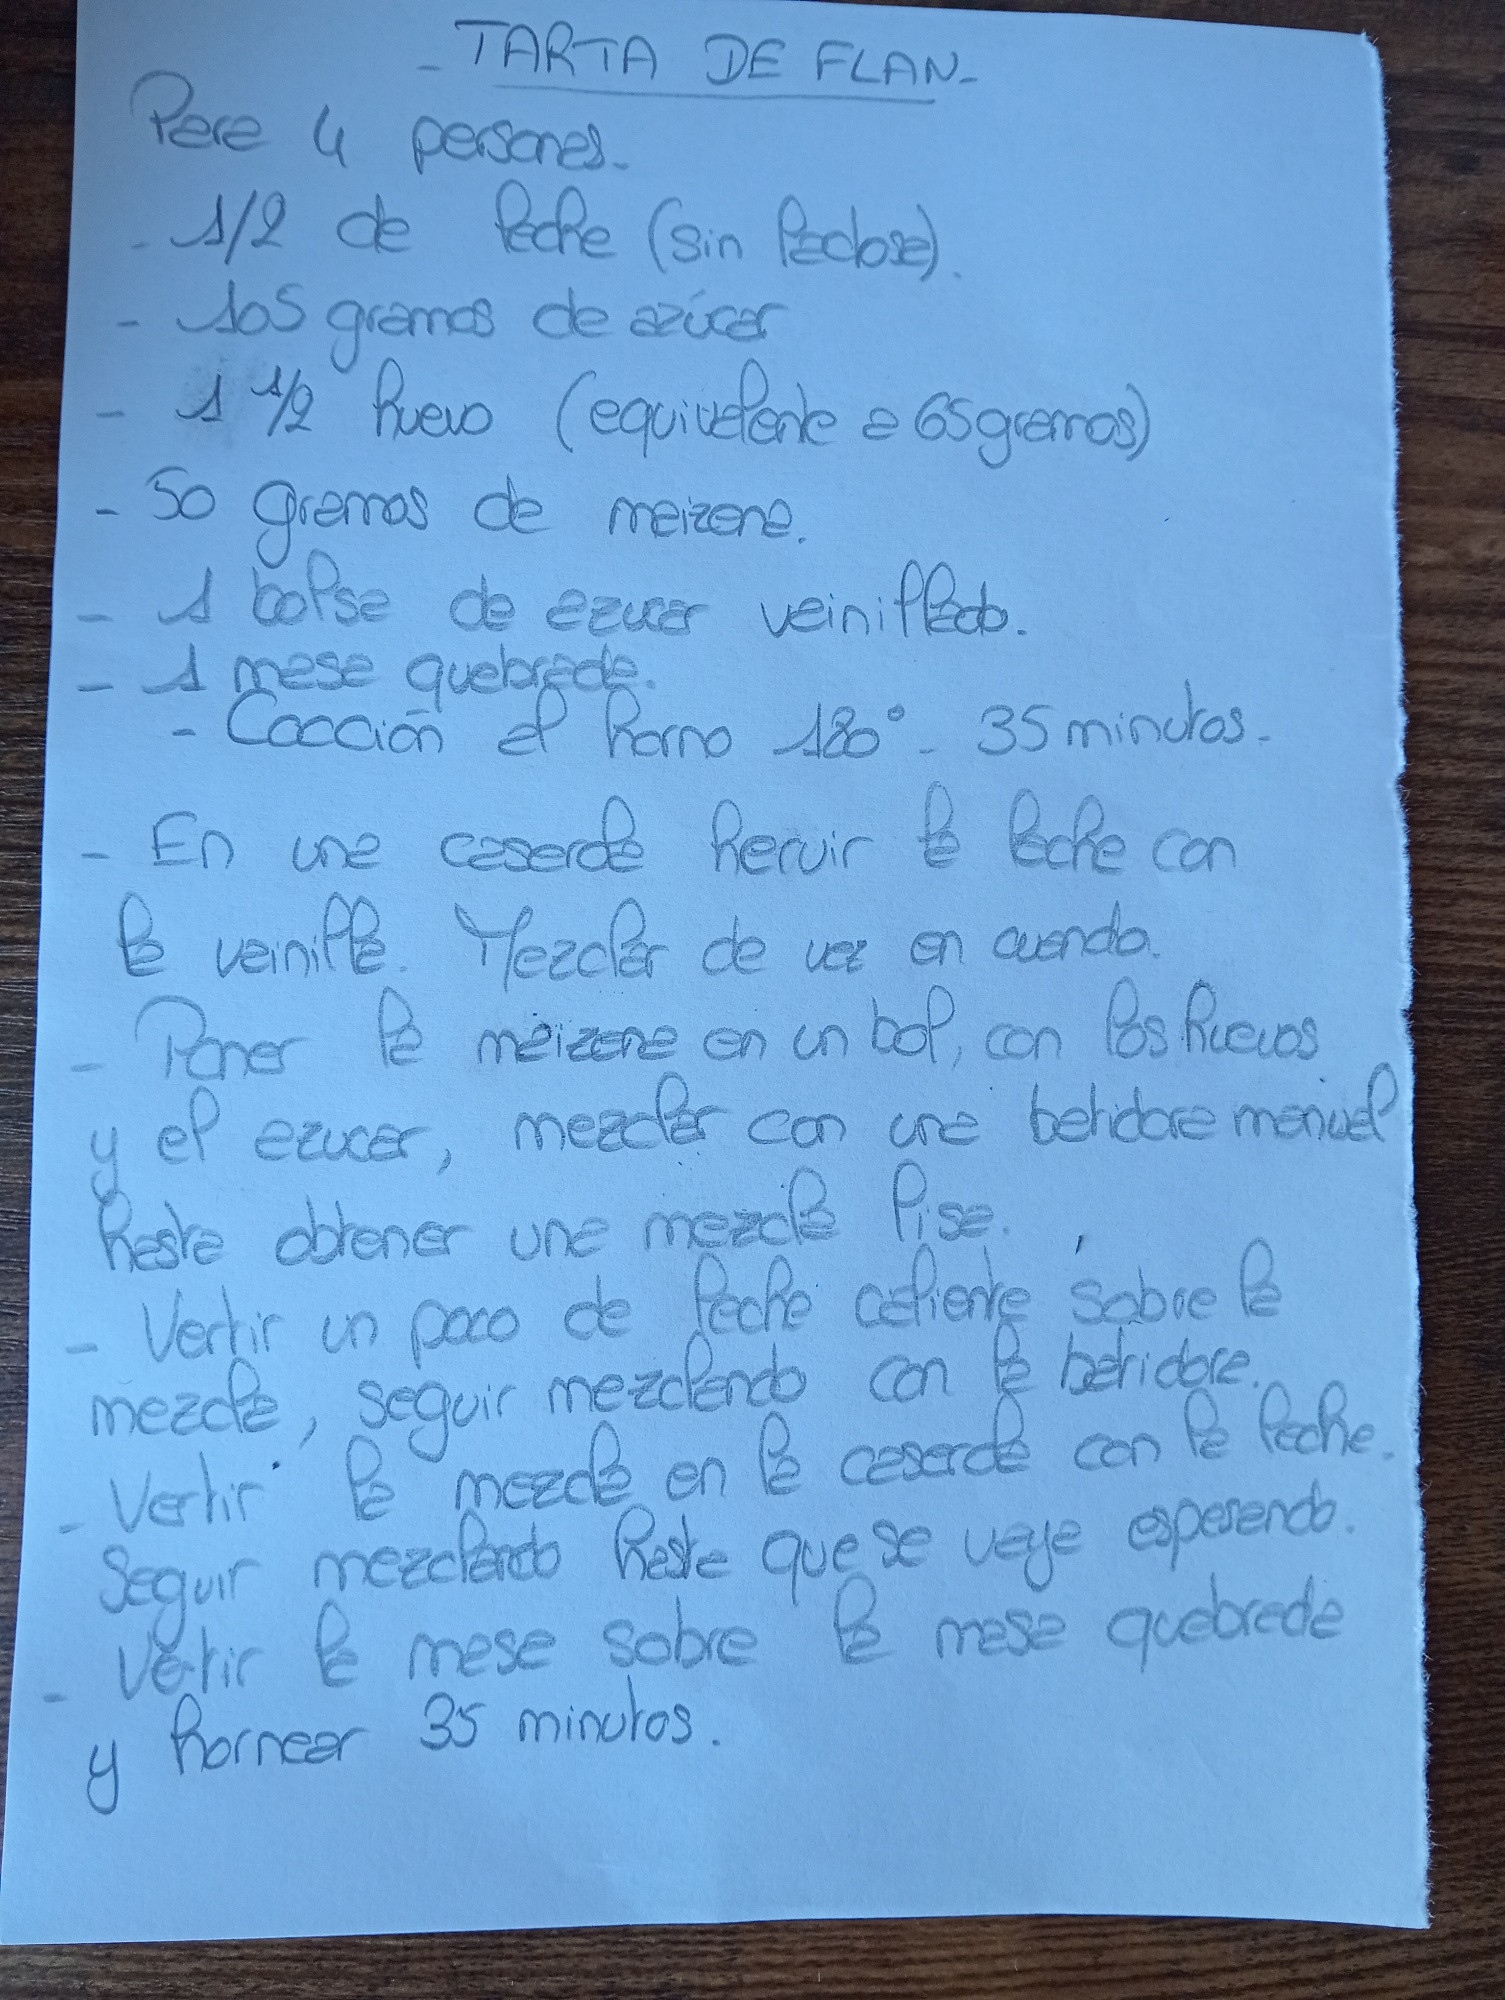 - TARTA DE FLAN -
Para 4 personas.
- 1/2 de leche (sin lactosa).
- 105 gramos de azúcar
- 1 1/2 huevo (equivalente a 65 gramos)
- 50 gramos de maizena.
- 1 bolsa de azucar vainillado.
- 1 masa quebrada.
- Cocción al horno 180° - 35 minutos.
- En una caserola hervir la leche con
la vainilla. Mezclar de vez en cuando.
- Poner la maizena en un bol, con los huevos
y el azucar, mezclar con una batidora manual
hasta obtener una mezcla lisa.
- Vertir un poco de leche caliente sobre la
mezcla, seguir mezclando con la batidora.
- Vertir la mezcla en la caserola con la leche.
Seguir mezclando hasta que se vaya espesando.
- Vertir la masa sobre la masa quebrada
y hornear 35 minutos.